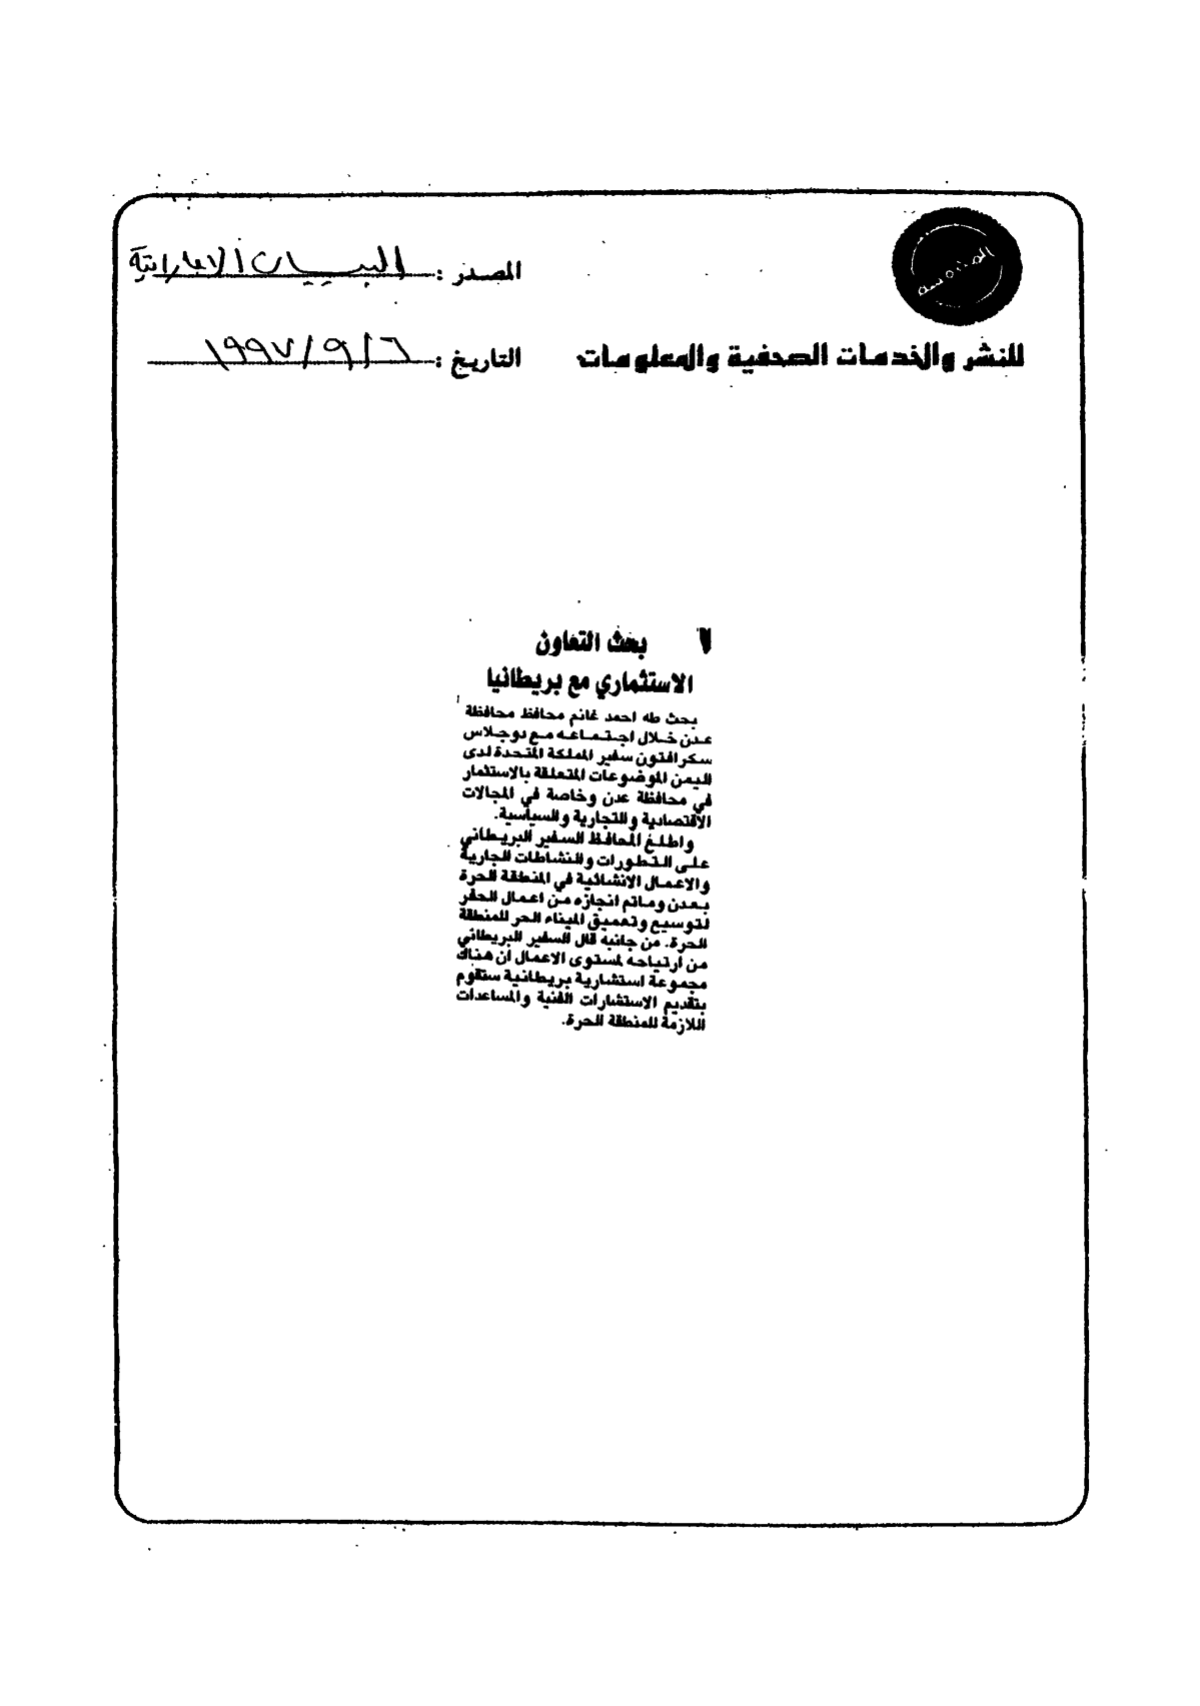 المصدر : البيان الاماراتية
للنشر والخدمات الصحفية والمعلومات
التاريخ : ٦/٩/١٩٩٧
بحث التعاون
الاستثماري مع بريطانيا
بحث طه احمد غانم محافظ محافظة
عدن خلال اجتماعه مع دوجلاس
سكرافتون سفير المملكة المتحدة لدى
اليمن الموضوعات المتعلقة بالاستثمار
في محافظة عدن وخاصة في المجالات
الاقتصادية والتجارية والسياسية.
واطلع المحافظ السفير البريطاني
على التطورات والنشاطات الجارية
والاعمال الانشائية في المنطقة الحرة
بعدن وماتم انجازه من اعمال الحفر
لتوسيع وتعميق الميناء الحر للمنطقة
الحرة. من جانبه قال السفير البريطاني
من ارتياحه لمستوى الاعمال ان هناك
مجموعة استشارية بريطانية ستقوم
بتقديم الاستشارات الفنية والمساعدات
اللازمة للمنطقة الحرة.